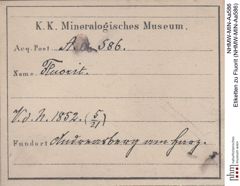 K. K. Mineralogisches Museum.
Acq. Post A.a. 586.
Name Fluorit.
V. d. N. 1852. (5/21)
Fundort Andreasberg am Harz.
NHMW-MIN-Aa586
Etiketten zu Fluorit (NHMW-MIN-Aa586)
nhm